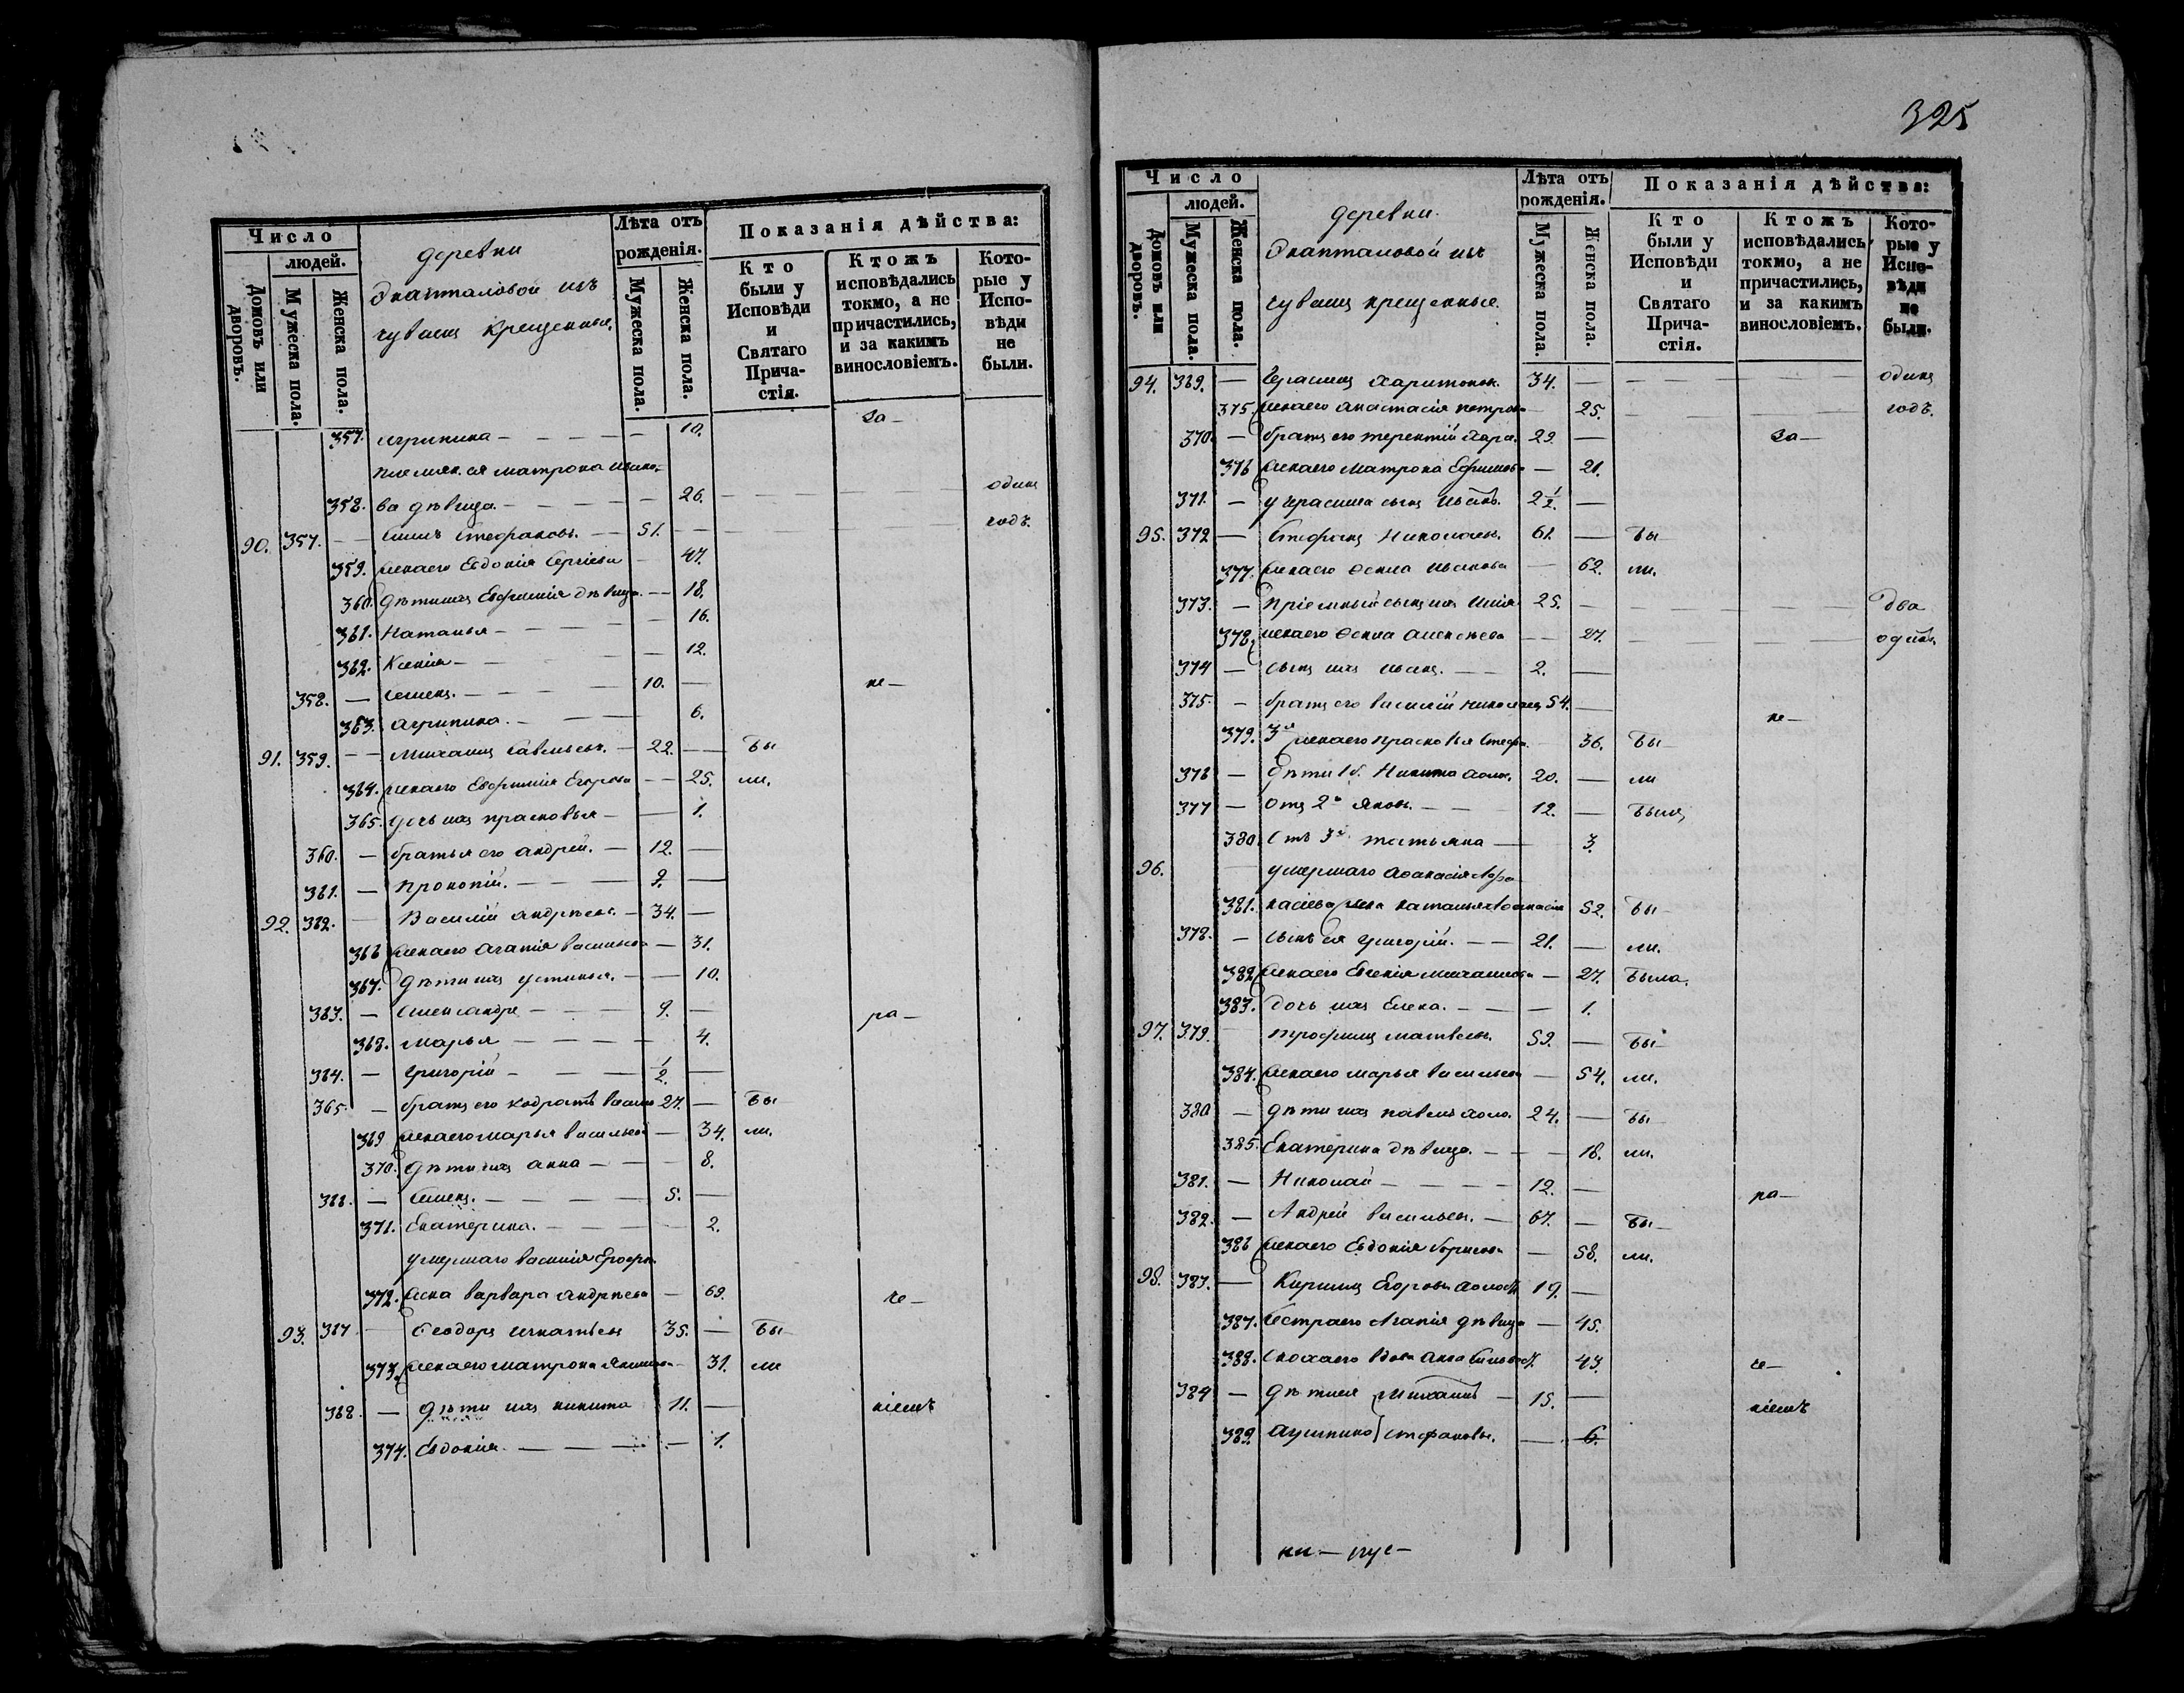 325
Число
людей.
Домовъ или дворовъ.
Мужеска пола.
Женска пола.
деревни
изъ
чувашъ крещенные.
Лѣта отъ рожденія.
Мужеска пола.
Женска пола.
Показанія дѣйства:
Кто были у Исповѣди и Святаго Прича-стія.
Ктожъ исповѣдались токмо, а не причастились, и за какимъ винословіемъ.
Кото-рые у Испо-вѣди не были.
357. Агрипина — 10. за—
Племян. ея матрона
358. ва дѣвица. — 26. одинъ
90. 357. — Стефановъ. — 51. — годъ.
359. жена его Евдокія Сергіева — 47.
360. Дѣти ихъ Евфимія дѣвица — 18.
361. Наталья — 16.
362. Ксенія — 12.
358. — Семенъ. — 10. — не—
363. Агрипина. — 6.
91. 359. — Михаилъ Савельевъ. — 22. — Бы
364. жена его Евфимія Егорова — 25. ли.
365. дочь ихъ прасковья — 1.
360. — братья его андрей. — 12. —
361. — Прокопій. — 9. —
92. 362. — Василій андреевъ. — 34. —
366 жена его Агапія васильева — 31.
367. Дѣти ихъ устинья. — 10.
363. — Александръ — 9. — ра—
368. марья — 4.
364. — григорій — 1/2. —
365. — братъ его 27. — Бы
369 жена его марья васильева — 34. ли.
370. Дѣти ихъ анна — 8.
366. — Семенъ. — 5. —
371. Екатерина. — 2.
умершаго василія
372. жена варвара андреева — 69. че—
93. 367 — Ѳеодоръ игнатьевъ 35. — Бы—
373. жена его матрона — 31. ли
368. — дѣти ихъ никита 11. — ніемъ
374. Евдокія. — 1.
Число
людей.
Домовъ или дворовъ.
Мужеска пола.
Женска пола.
деревни.
изъ
чувашъ крещенные.
Лѣта отъ рожденія.
Мужеска пола.
Женска пола.
Показанія дѣйства:
Кто были у Исповѣди и Святаго Прича-стія.
Ктожъ исповѣдались токмо, а не причастились, и за какимъ винословіемъ.
Кото-рые у Испо-вѣди не были.
94. 369. — Герасимъ Харитонов. 34. — одинъ
375. жена его анастасія петрова — 25. — годъ.
370. — братъ его терентій Хари. 29. — за—
376 жена его Матрона Ефимова — 21.
371. — у Герасима сынъ 2 1/2. —
95. 372 — Стефанъ Николаев. 61. — Бы
377. жена его — 62. ли.
373. — пріемный сынъ ихъ Илія 25. — два
378. жена его Алексѣева — 27. — одинъ.
374 — сынъ ихъ иванъ. — 2. —
375. — братъ его василій николаев 54. — не—
379. 3я жена его прасковья Стефа. — 36. Бы—
376 — дѣти 1й. Никита 20. — ли
377 — отъ 2й яковъ. — 12. — былъ,
380. отъ 3й татьяна — 3.
96. умершаго Аѳанасія
381. жена наталья 52. Бы—
378. — сынъ ея григорій. — 21. — ли.
382. жена его — 27. Была.
383. дочь ихъ Елена. — 1.
97. 379. Трофимъ матвѣевъ. 59. — Бы—
384. жена его марья васильева — 54. ли.
380 — дѣти ихъ павелъ 24. — Бы
385. Екатерина дѣвица. — 18. ли.
381. — Николай — 12. — ра—
382. — Андрей васильевъ. — 67. — Бы—
386 жена его Евдокія борисова — 58. ли.
98. 383. — Егоровъ 19. —
387. Сестра его Агапія дѣвица — 45.
388. сноха его вдова Анна 43. че—
384 — дѣти ея Михаилъ — 15. — ніемъ
389. стефановы. — 6.